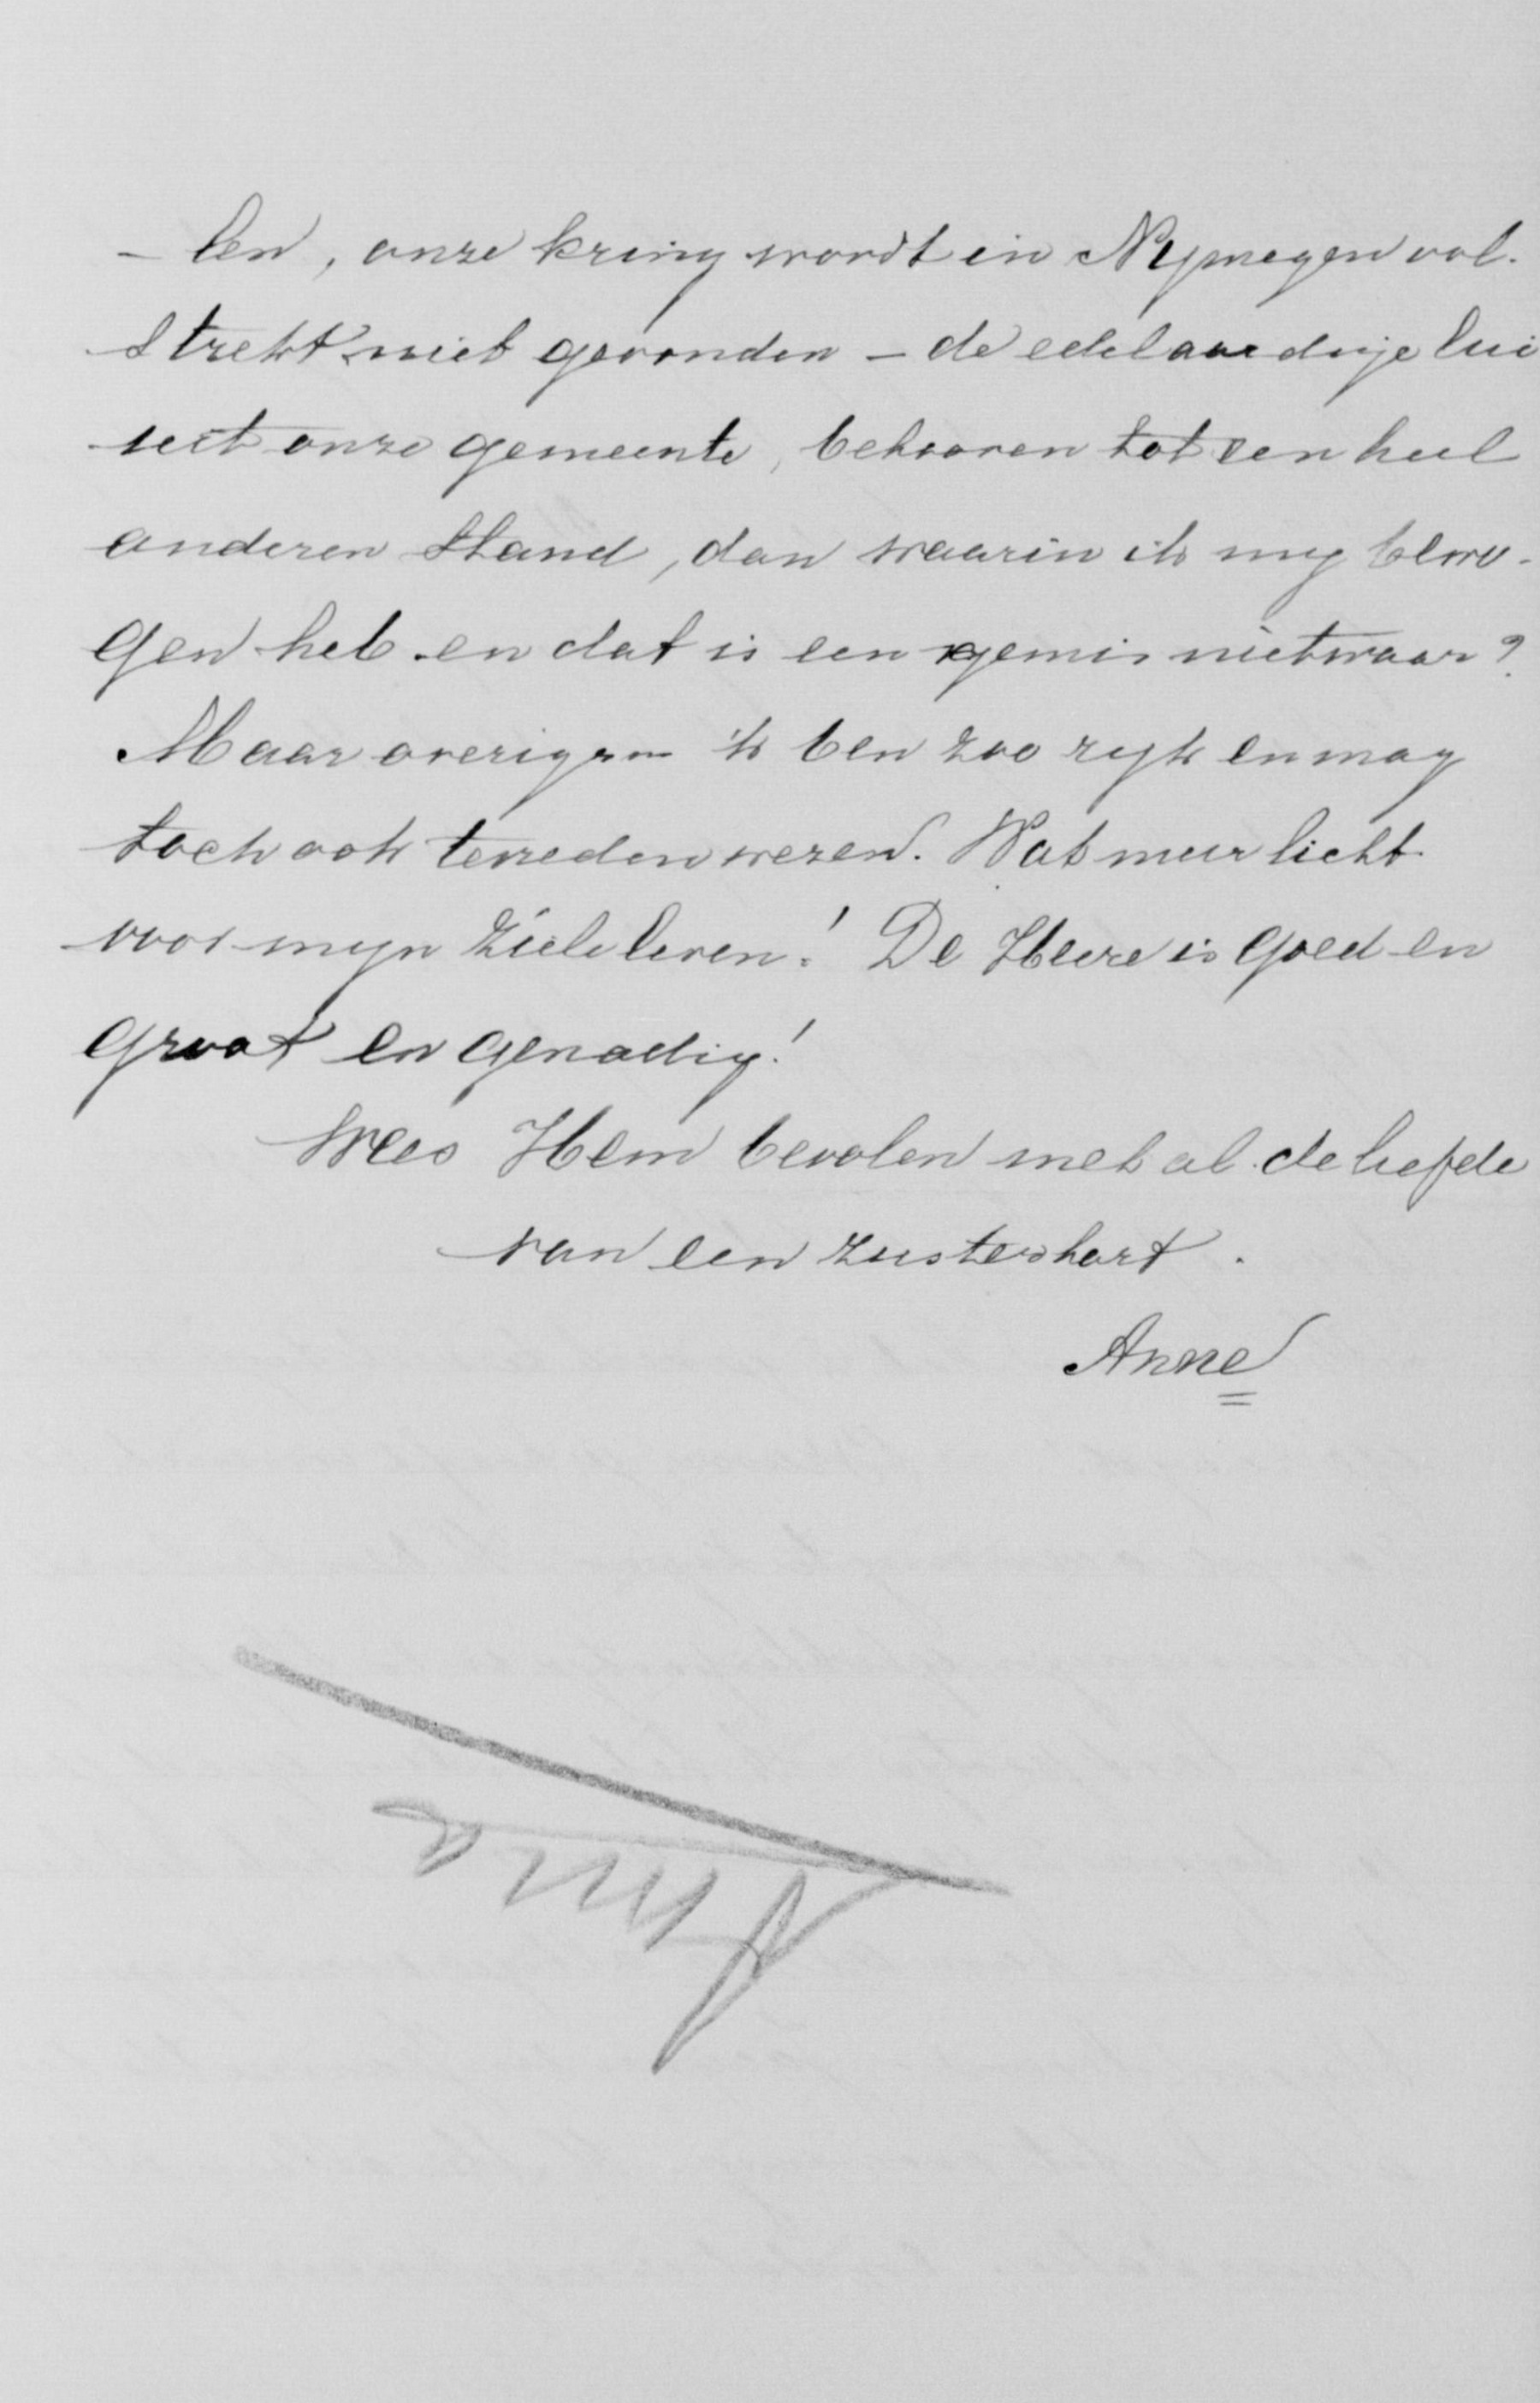 - len, onze kring wordt in Nijmegen vol-
strekt niet gevonden - de edelaardige lui
uit onze gemeente, behooren tot een heel
anderen stand, dan waarin ik mij bewo-
gen heb en dat is een gemis nietwaar?
Maar overigens ik ben zoo rijk en mag
toch ook tevreden wezen. Wat meer licht
voor mijn zieleleven! De Heere is goed en
groot en genadig!
Wees Hem bevolen met al de liefde
van een zustershart.
Anne
Anna